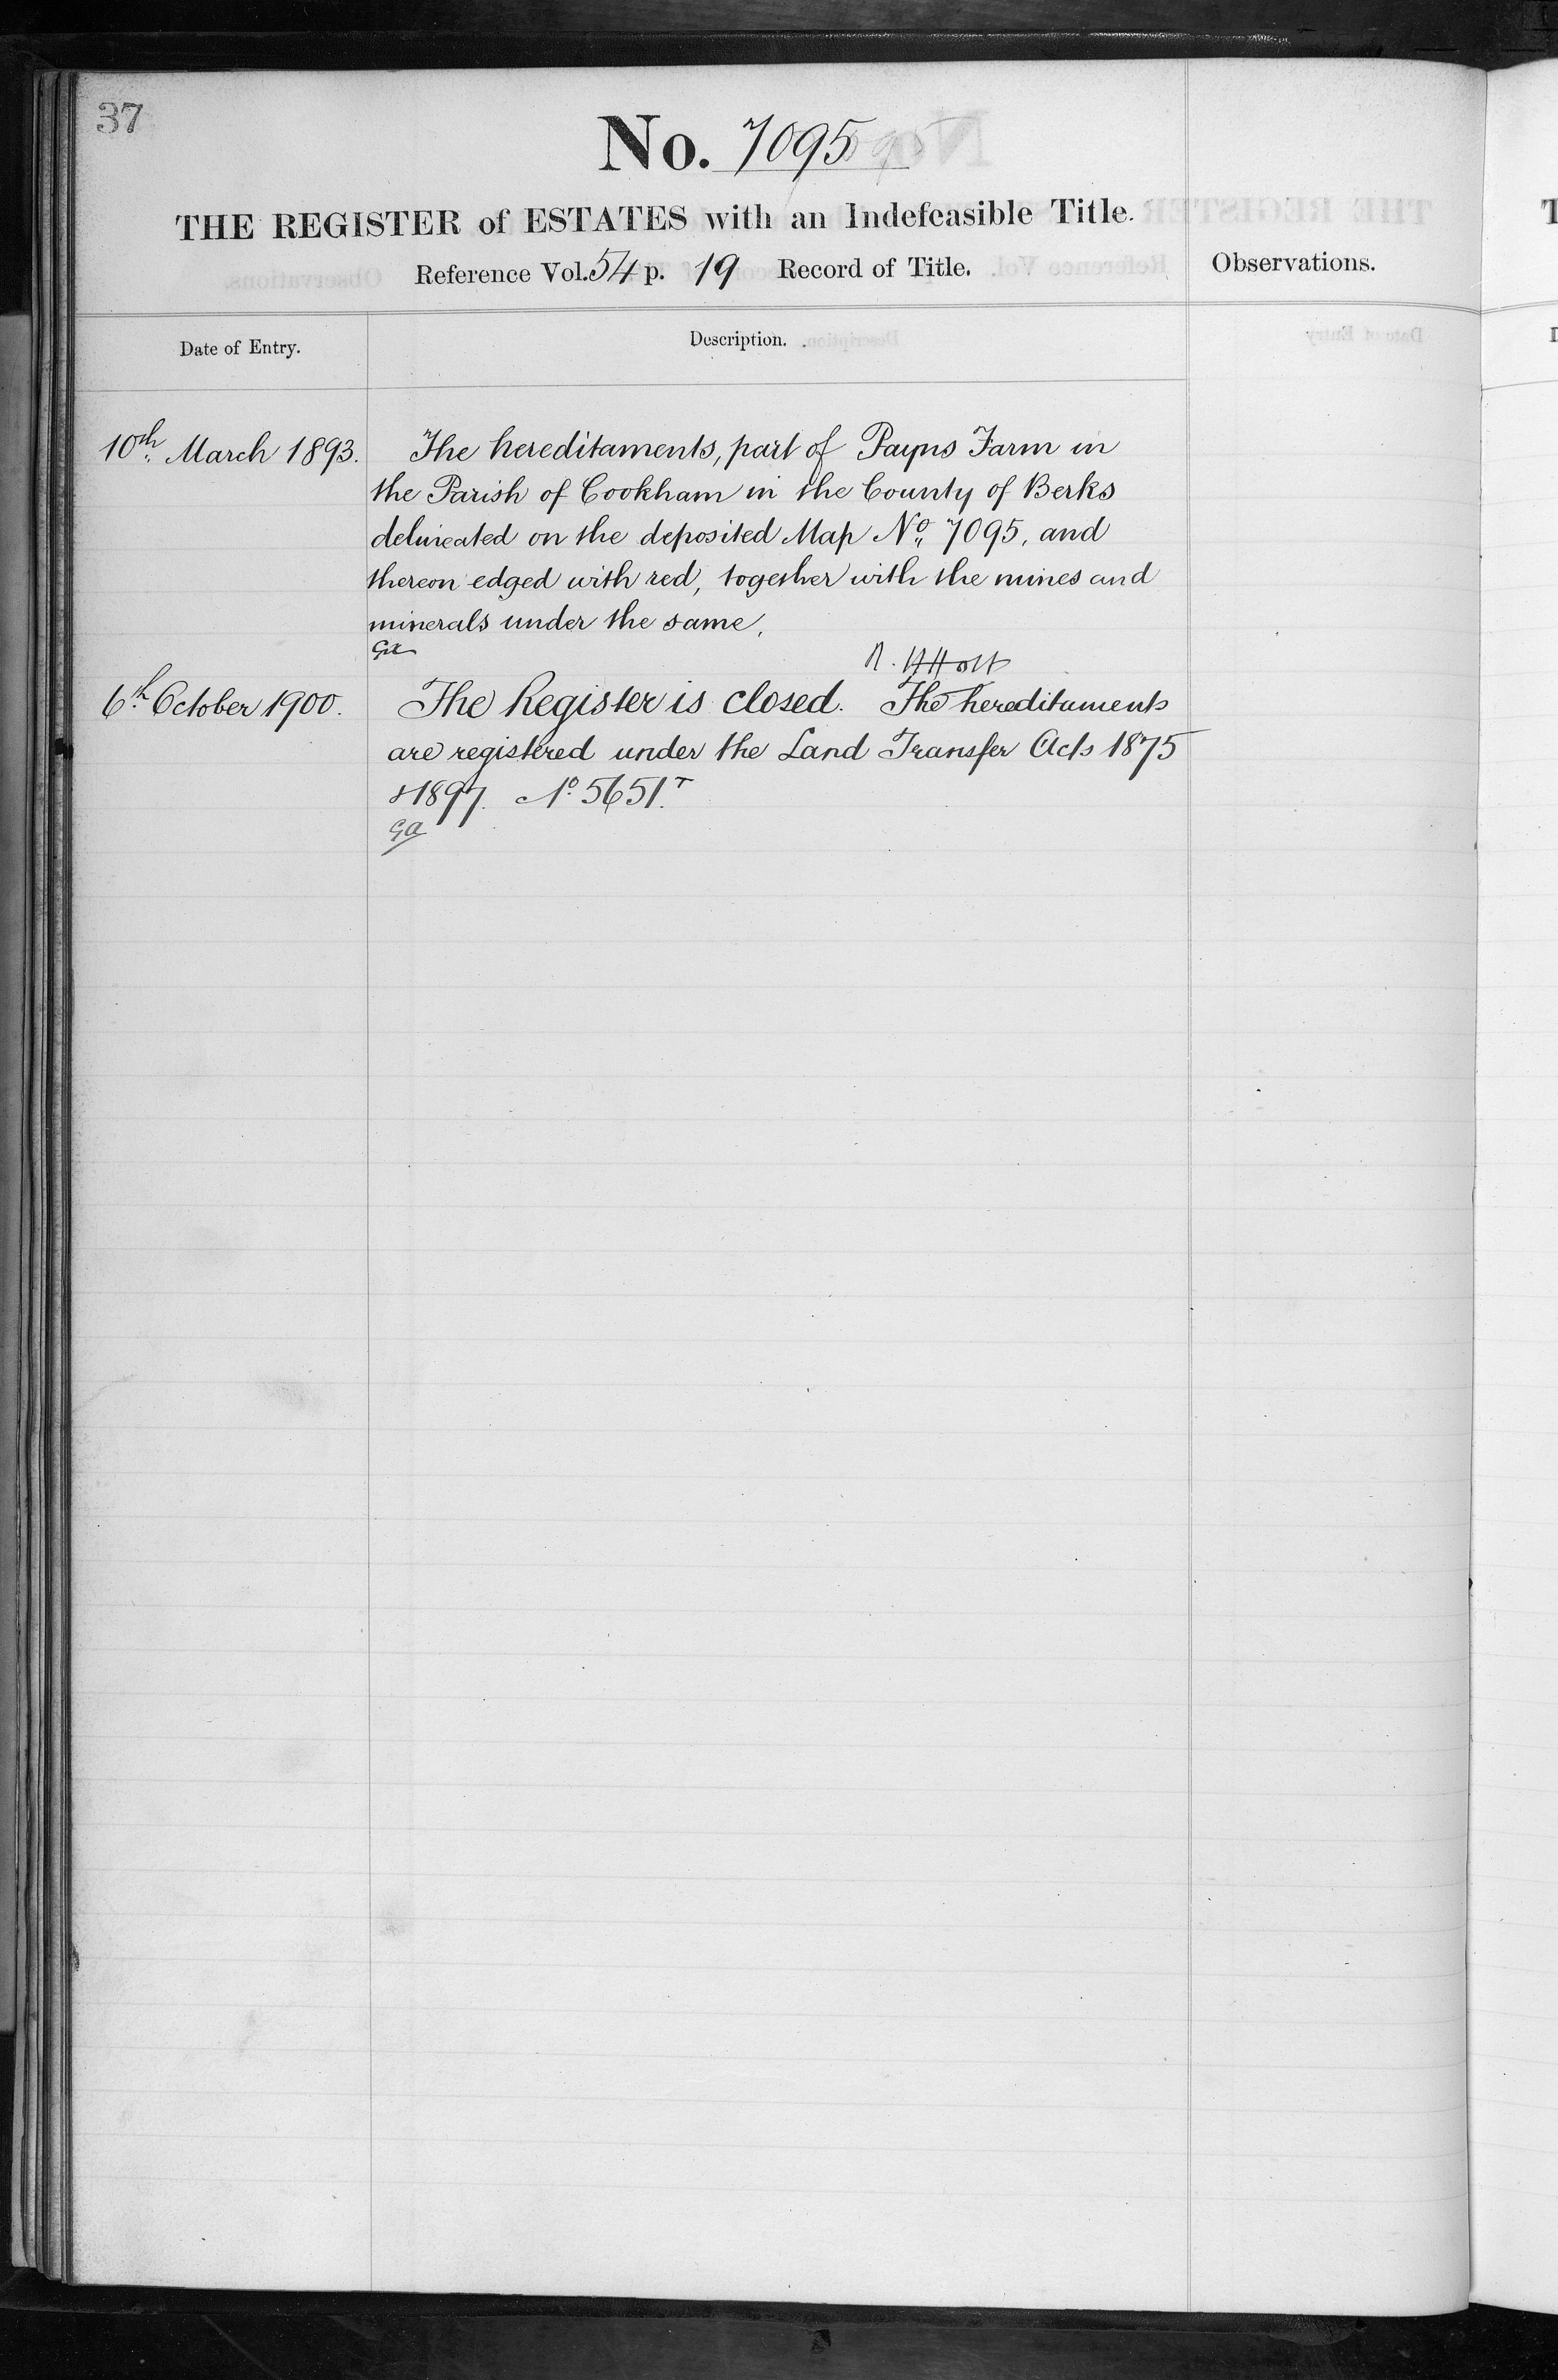 37
No. 7095
THE REGISTER of ESTATES with an Indefeasible Title.
Reference Vol. 54 p. 19 Record of Title.
Observations.
Date of Entry.
Description.
10th March 1893.
The hereditaments, part of Payns Farm in
the Parish of Cookham in the County of Berks
delineated on the deposited Map No 7095, and
thereon edged with red, together with the mines and
minerals under the same.
R. H Holt
6th October 1900.
The Register is closed. The hereditaments
are registered under the Land Transfer Acts 1875
& 1897. No 5651.T
GA